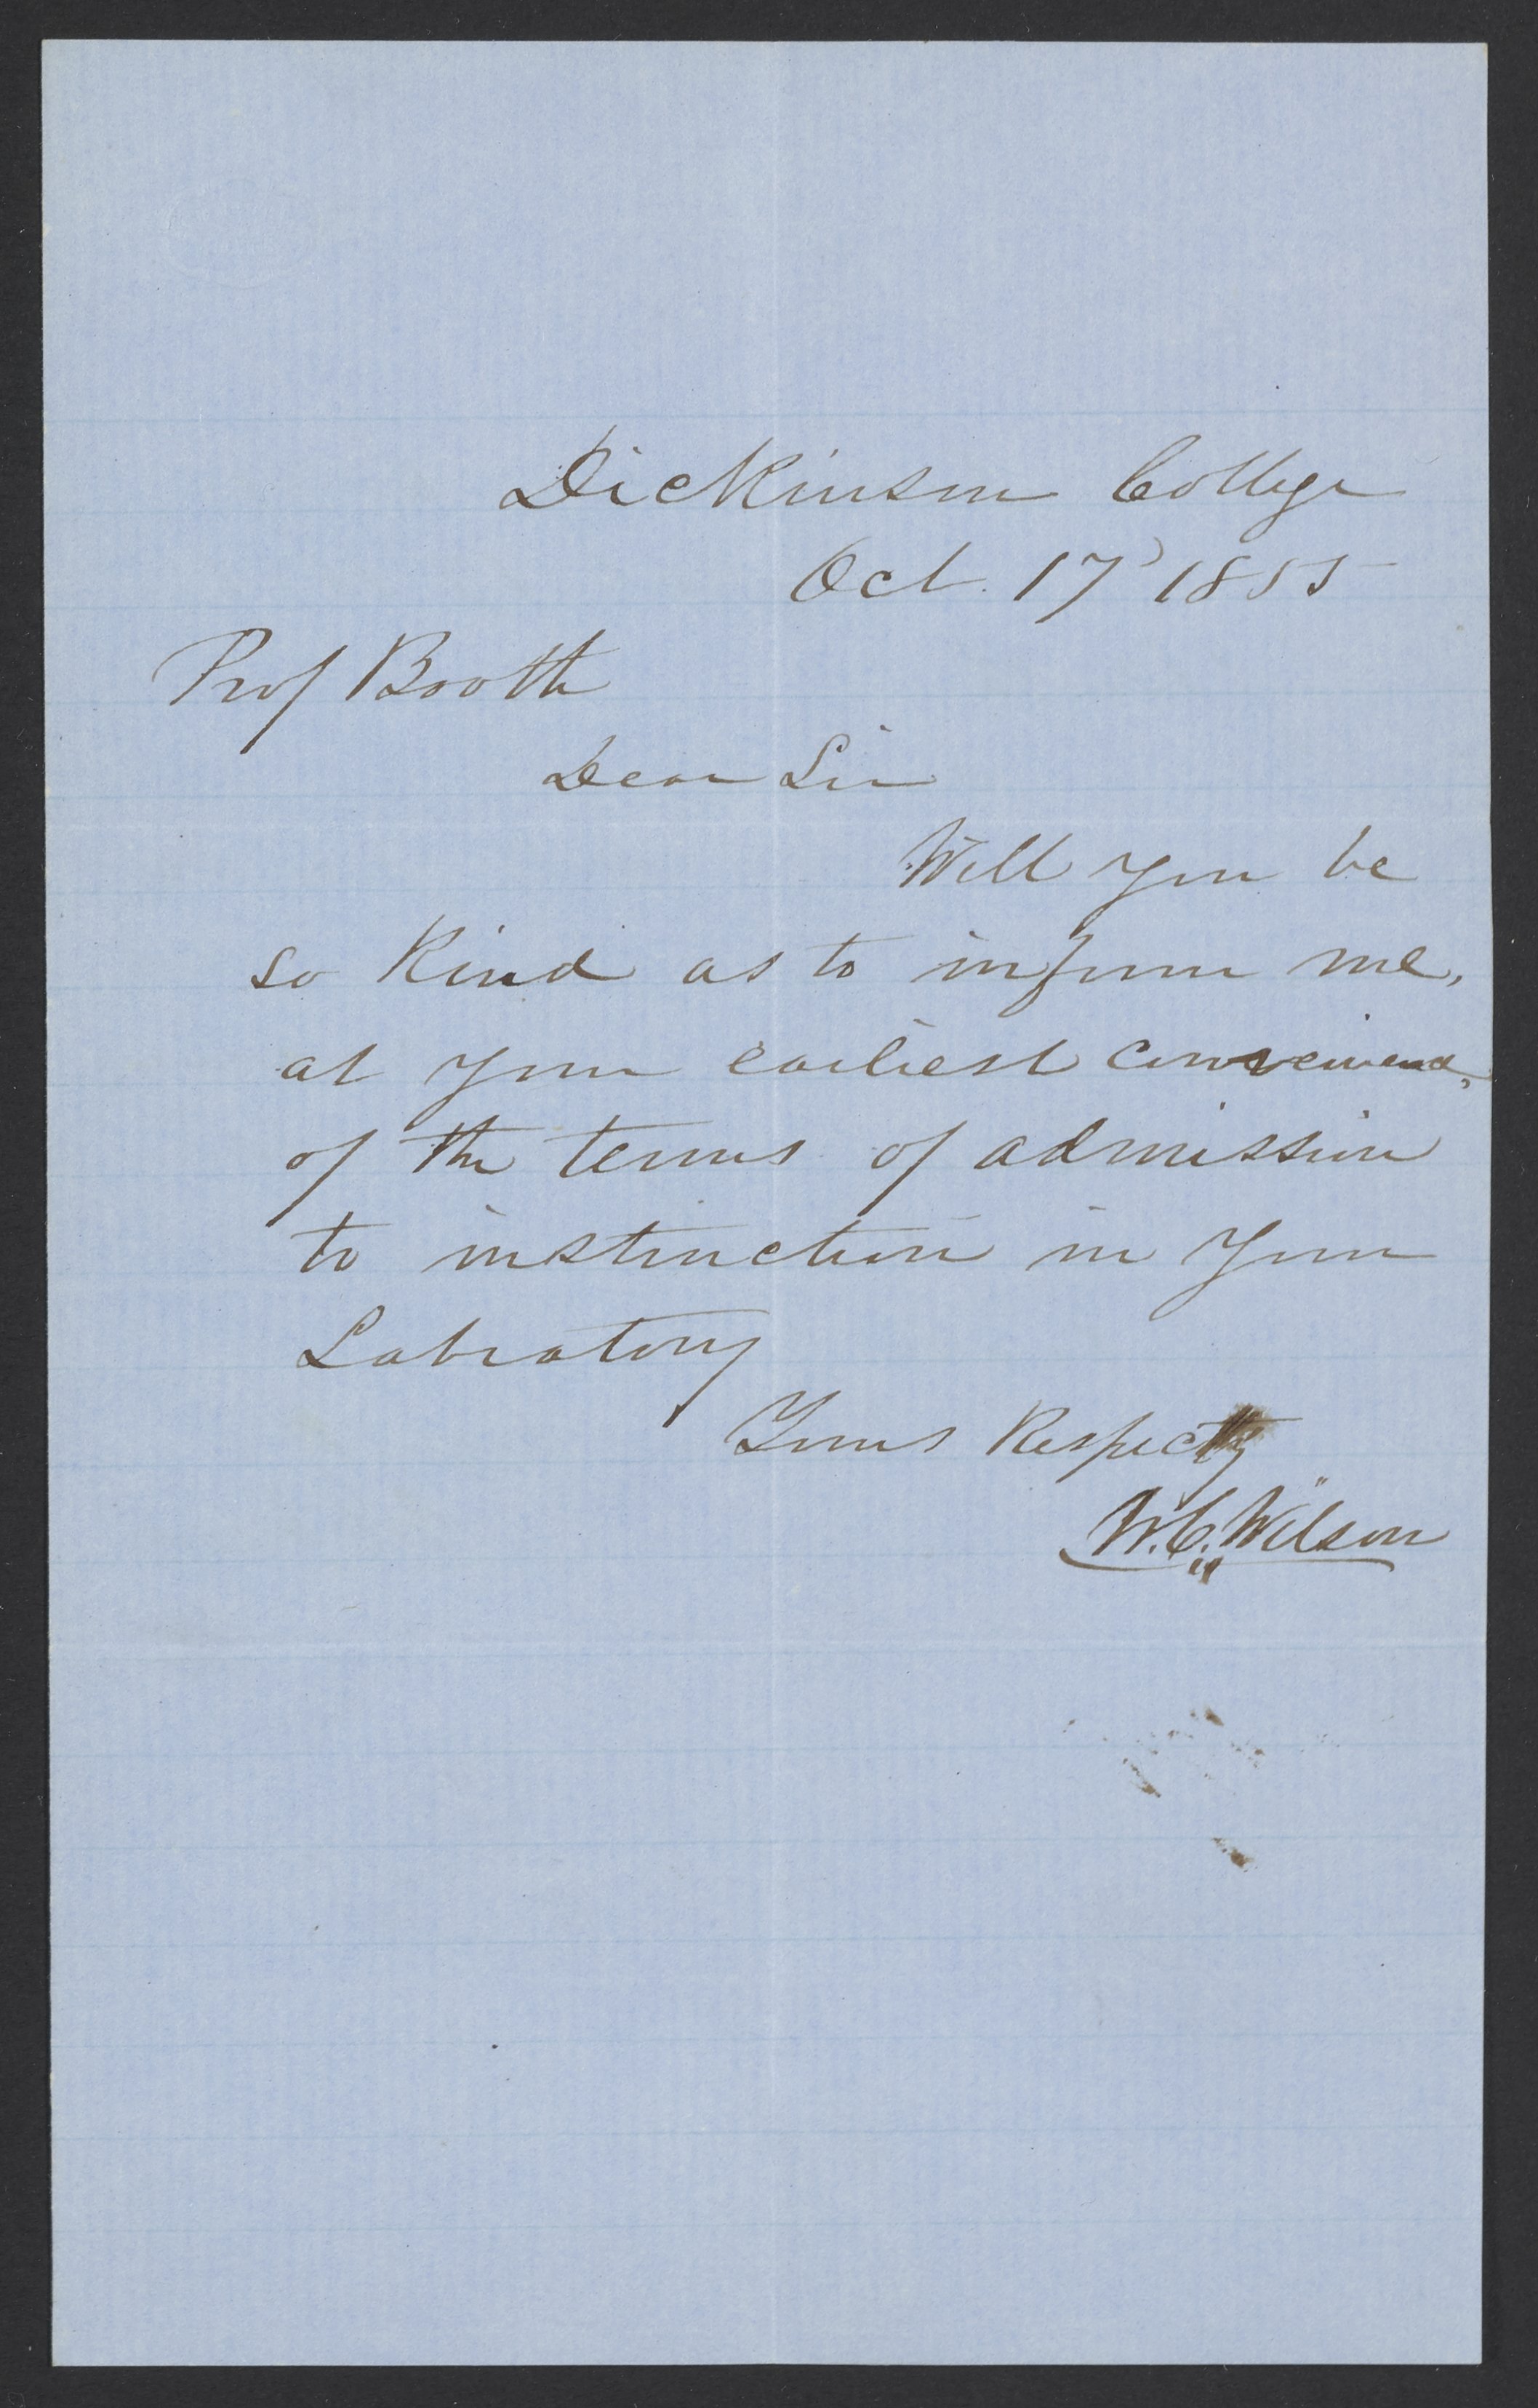 Dickinson College
Oct. 17' 1855
Prof Booth
Dear Sir
Will you be
so kind as to inform me,
at your earliest convenience,
of the terms of admission
to instruction in your
Labratory
Yours Respecty
W. C. Wilson